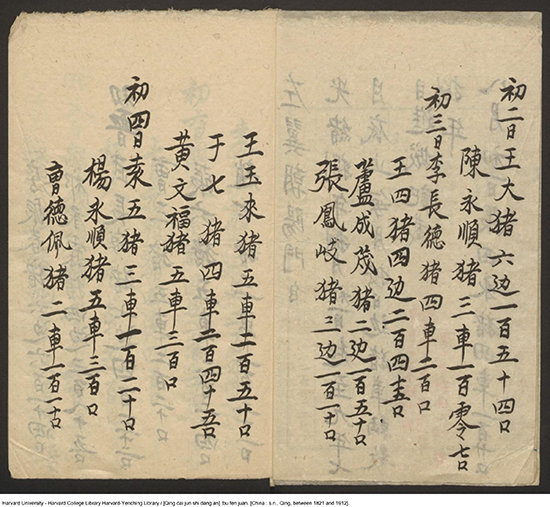 初二日王大猪六边一百五十四口
陳永順猪三車一百零七口
初三日李長德猪四車二百口
王四猪四边二百四十五口
蘆成茂猪二边一百五十口
張鳳岐猪三边一百一十口
王玉來猪五車二百五十口
于七猪四車二百四十五口
黄文福猪五車三百口
初四日袁五猪三車一百二十口
楊永順猪五車三百口
曹德佩猪二車一百一十口
Harvard University - Harvard College Library Harvard-Yenching Library / [Qing dai jun shi dang an] :bu fen juan. [China : s.n., Qing, between 1821 and 1912].